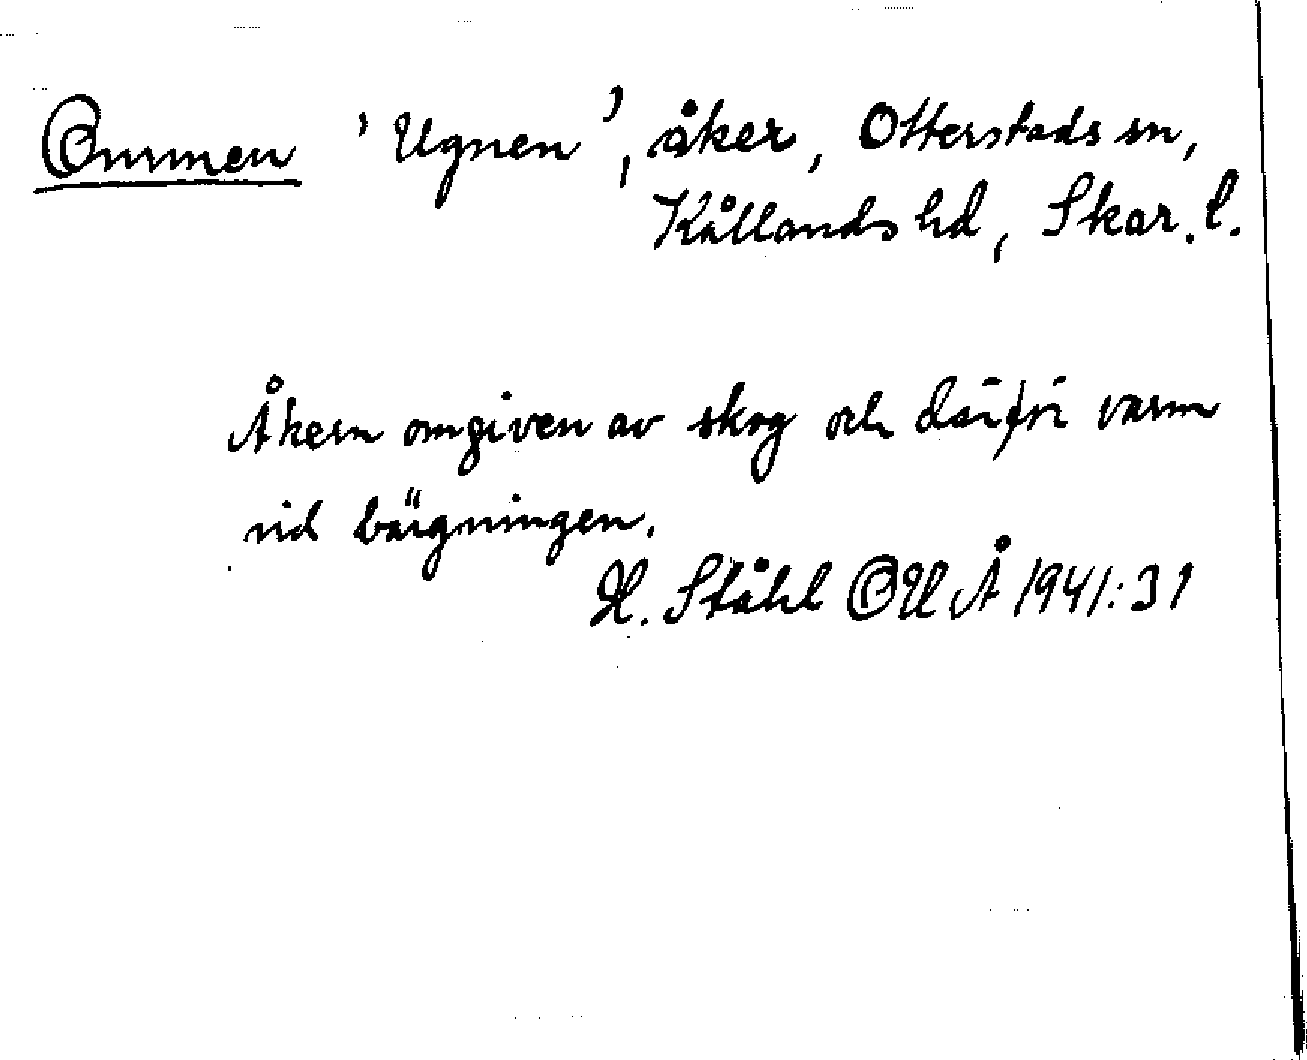 Ommen 'Ugnen', åker, Otterstads sn,
Kållands hd, Skar. l.
Åkern omgiven av skog och därför varm
vid bärgningen.
H. Ståhl OUÅ 1941:31